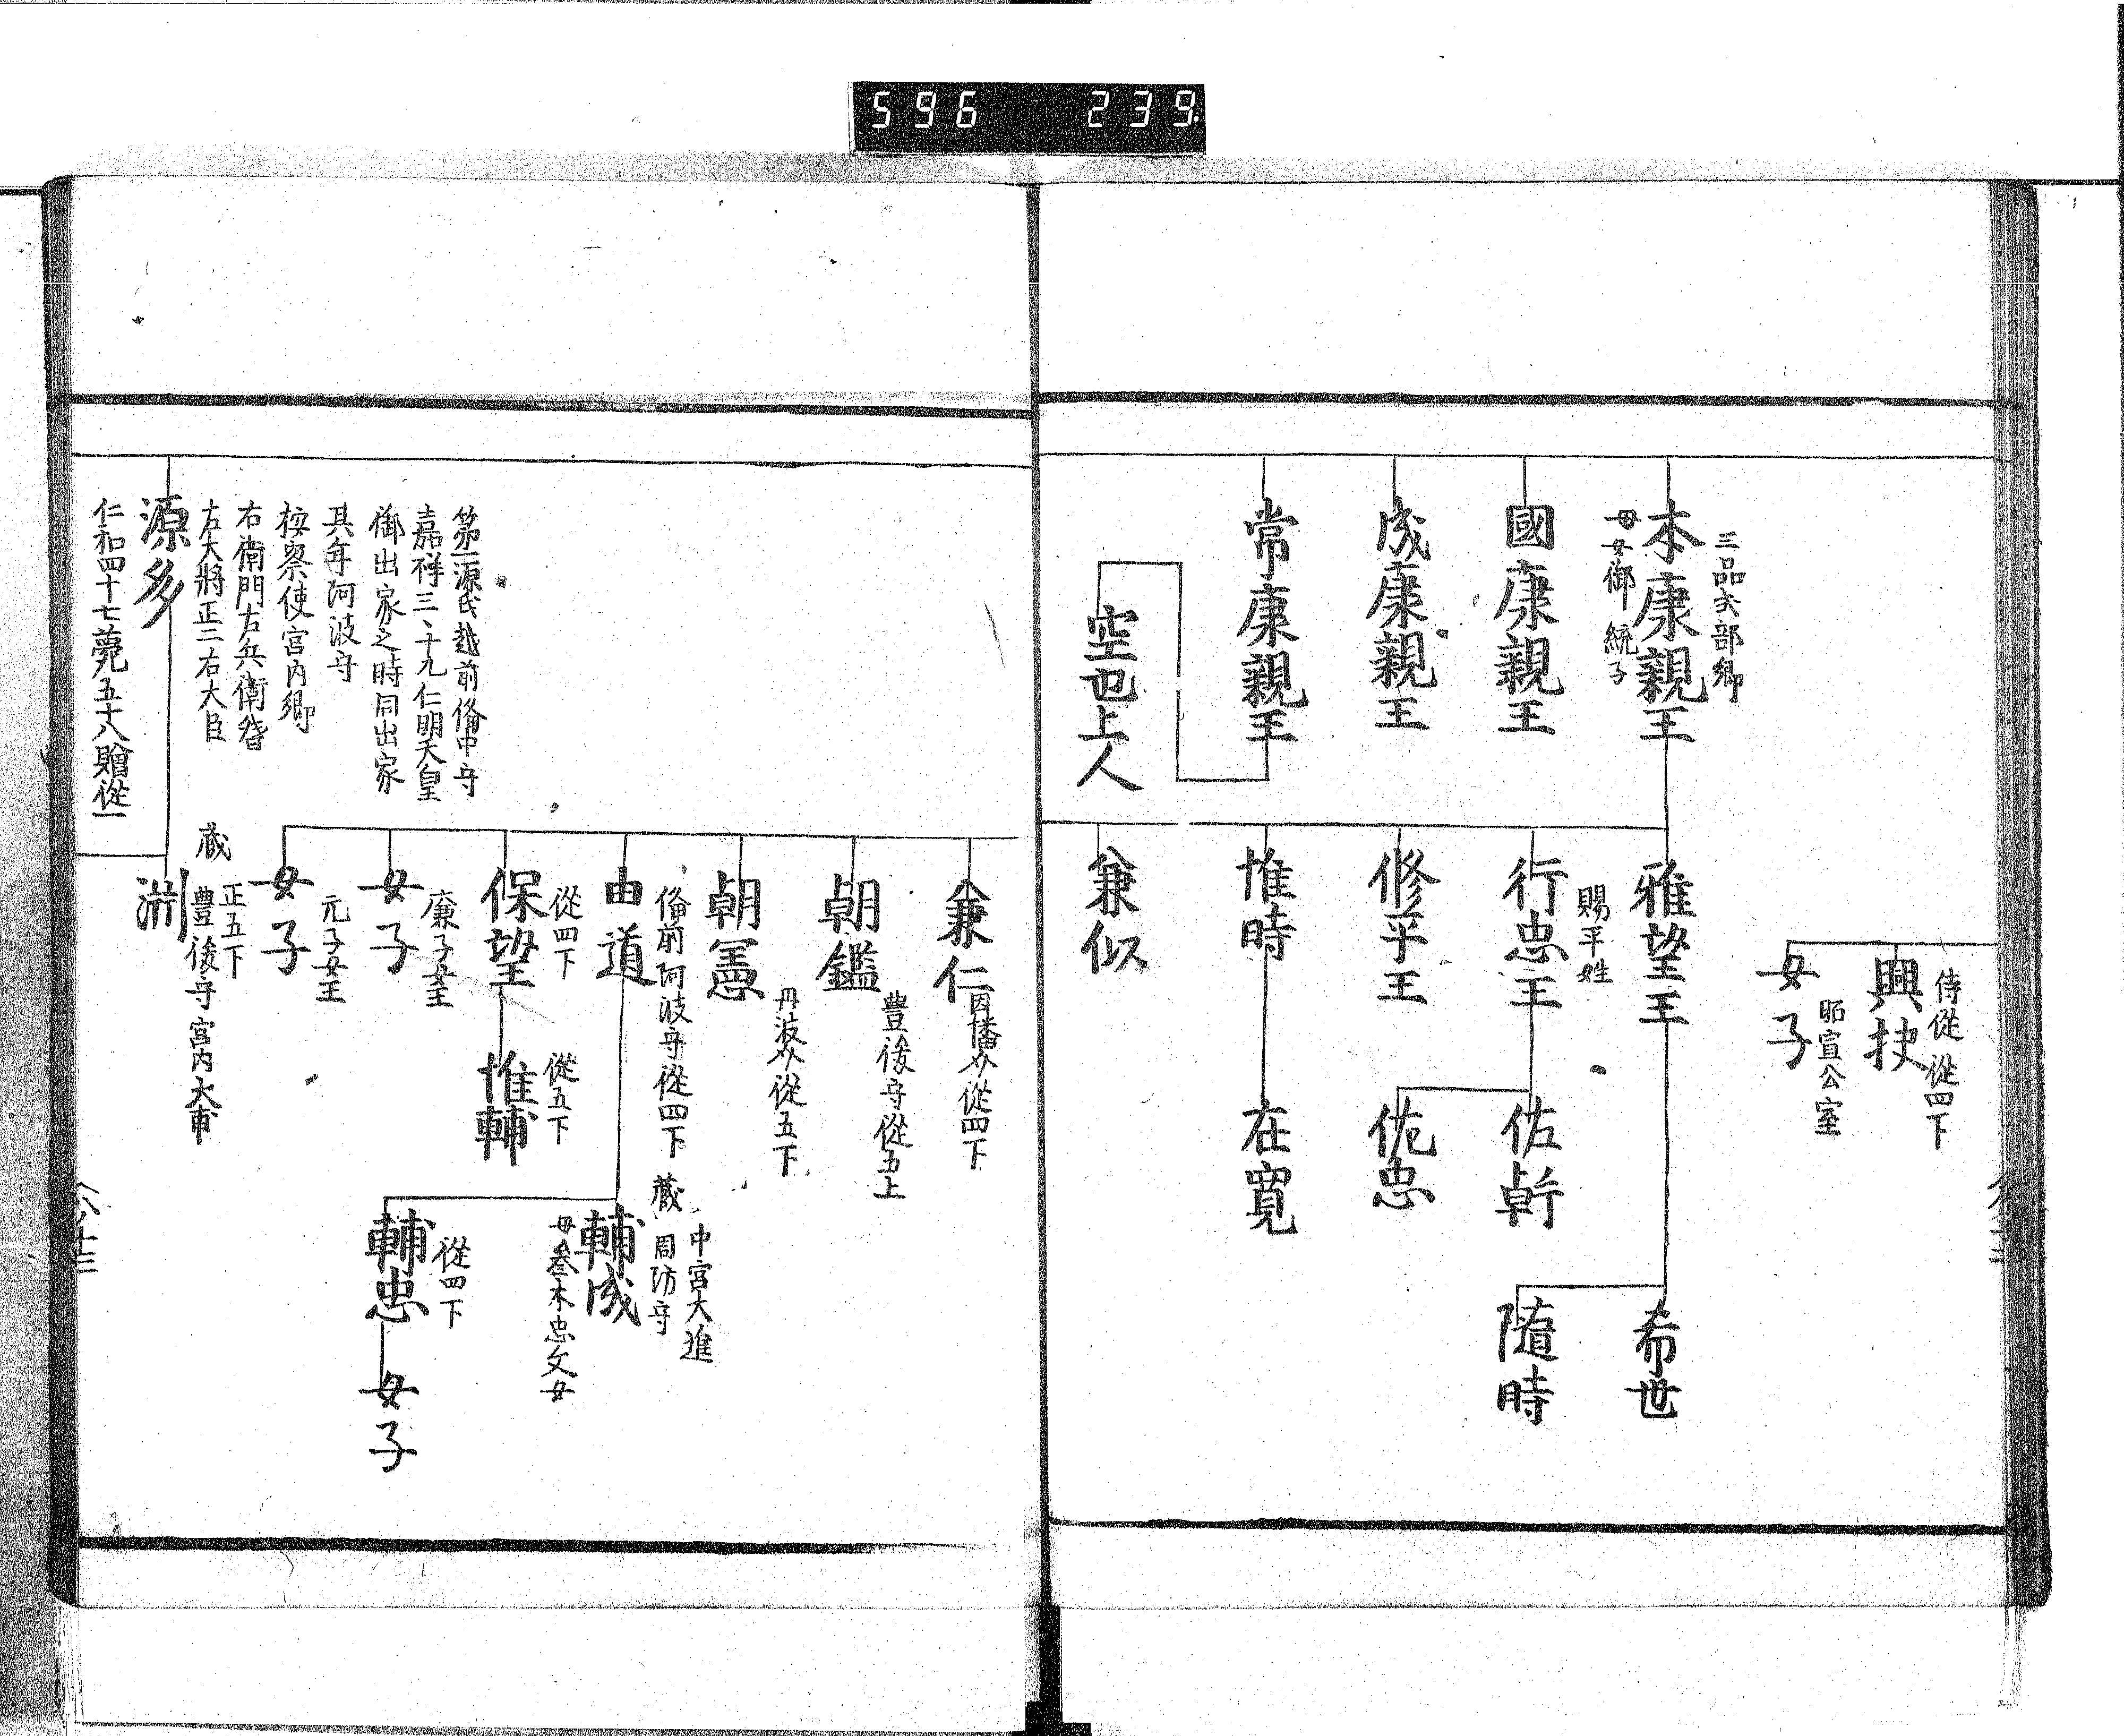 596 239
侍從 從四下
興扶
昭宣公室
女子
三品大部卿
本康親王
母女御 統子
國康親王
成康親王
常康親王
空也上人
雅望王
賜平姓
行忠王
修平王
惟時
兼似
希世
隨時
佐忠
在寛
兼仁
因幡介從四下
朝鑑
豊後守從五上
朝憲
丹波介從五下
備前阿波守從四下
由道
從四下
保望
廉子女王
女子
元子女王
女子
從五下
惟輔
藏
中宮大進
周防守
輔成
母參木忠文女
從四下
輔忠
女子
第一源氏越前備中守
嘉祥三、十九仁明天皇
御出家之時同出家
其年阿波守
按察使宮内卿
右衛門右兵衛督
左大將正二右大臣
源多
仁和四十七薨五十八贈從一
藏
正五下
豊後守宮内大甫